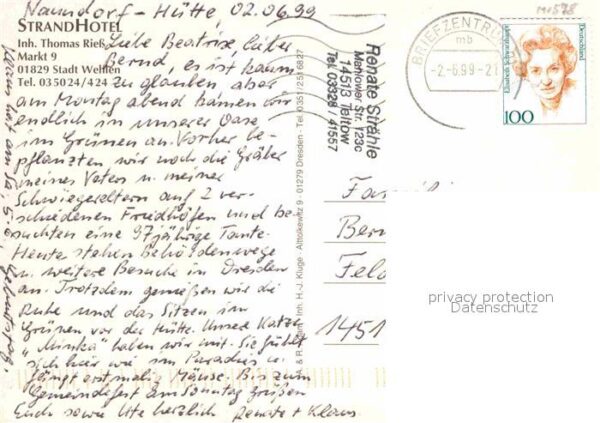 Naundorf-Hütte, 02.06.99
STRANDHOTEL
Inh. Thomas Rieß
Markt 9
01829 Stadt Wehlen
Tel. 035024/424
Liebe Beatrix, lieber
Bernd, es ist kaum
zu glauben, aber
am Montag abend kamen wir
endlich in unserer Oase
im Grünen an. Vorher be-
pflanzten wir noch die Gräber
meines Vaters u. meiner
Schwiegereltern auf 2 ver-
schiedenen Friedhöfen und be-
suchten eine 97jährige Tante.
Heute stehen Behördenwege
u. weitere Besuche in Dresden
an. Trotzdem genießen wir die
Ruhe und das Sitzen im
Grünen vor der Hütte. Unsere Katze
"Minka" haben wir mit. Sie fühlt
sich hier wie im Paradies u.
fängt erstmalig Mäuse. Bis zum
Gemeindefest am Sonntag grüßen
Euch sowie Ute herzlich Renate + Klaus
hat am Sa, 5.6. Geburtstag.
Inh. H.-J. Kluge - Alttolkewitz 9 - 01279 Dresden - Tel. 0351/251 6827
Renate Strähle
Mahlower Str. 123c
14513 Teltow
Tel. 03328 / 41557
BRIEFZENTRUM
mb
-2.-6.99-21
Elisabeth Schwarzhaupt
Deutschland
100
Fa
Ber
Feld
1451
privacy protection
Datenschutz